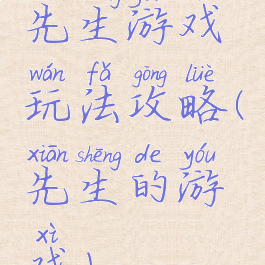 先生游戏
wán fǎ gōng lüè
玩法攻略(
xiān shēng de yóu
先生的游
xì
戏)